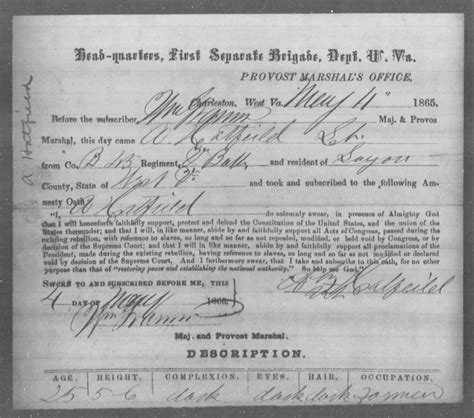 A Hatfield
Head-quarters, First Separate Brigade, Dept. W. Va.
PROVOST MARSHAL'S OFFICE,
Charleston, West Va. May 4 1865.
Before the subscriber, Maj. & Provos
Marshal, this day came A. Hatfield
from Co. B Regiment, and resident of Logan
County, State of West Va and took and subscribed to the following Am-
nesty Oath:
"I, A Hatfield do solemnly swear, in presence of Almighty God
that I will henceforth faithfully support, protect and defend the Constitution of the United States, and the union of the
States thereunder; and that I will, in like manner, abide by and faithfully support all Acts of Congress, passed during the
existing rebellion, with reference to slaves, so long and so far as not repealed, modified, or held void by Congress, or by
decision of the Supreme Court; and that I will in like manner, abide by and faithfully support all proclamations of the
President, made during the existing rebellion, having reference to slaves, so long and so far as not modified or declared
void by decision of the Supreme Court. And I furthermore swear, that I take and subscribe to this oath, for no other
purpose than that of "restoring peace and establishing the national authority." So help me God."
SWORN TO AND SUBSCRIBED BEFORE ME, THIS
4 DAY OF May 1865. Hatfeild
Maj. and Provost Marshal.
DESCRIPTION.
AGE. HEIGHT. COMPLEXION. EYES. HAIR. OCCUPATION.
25 5-6 dark dark dark Farmer